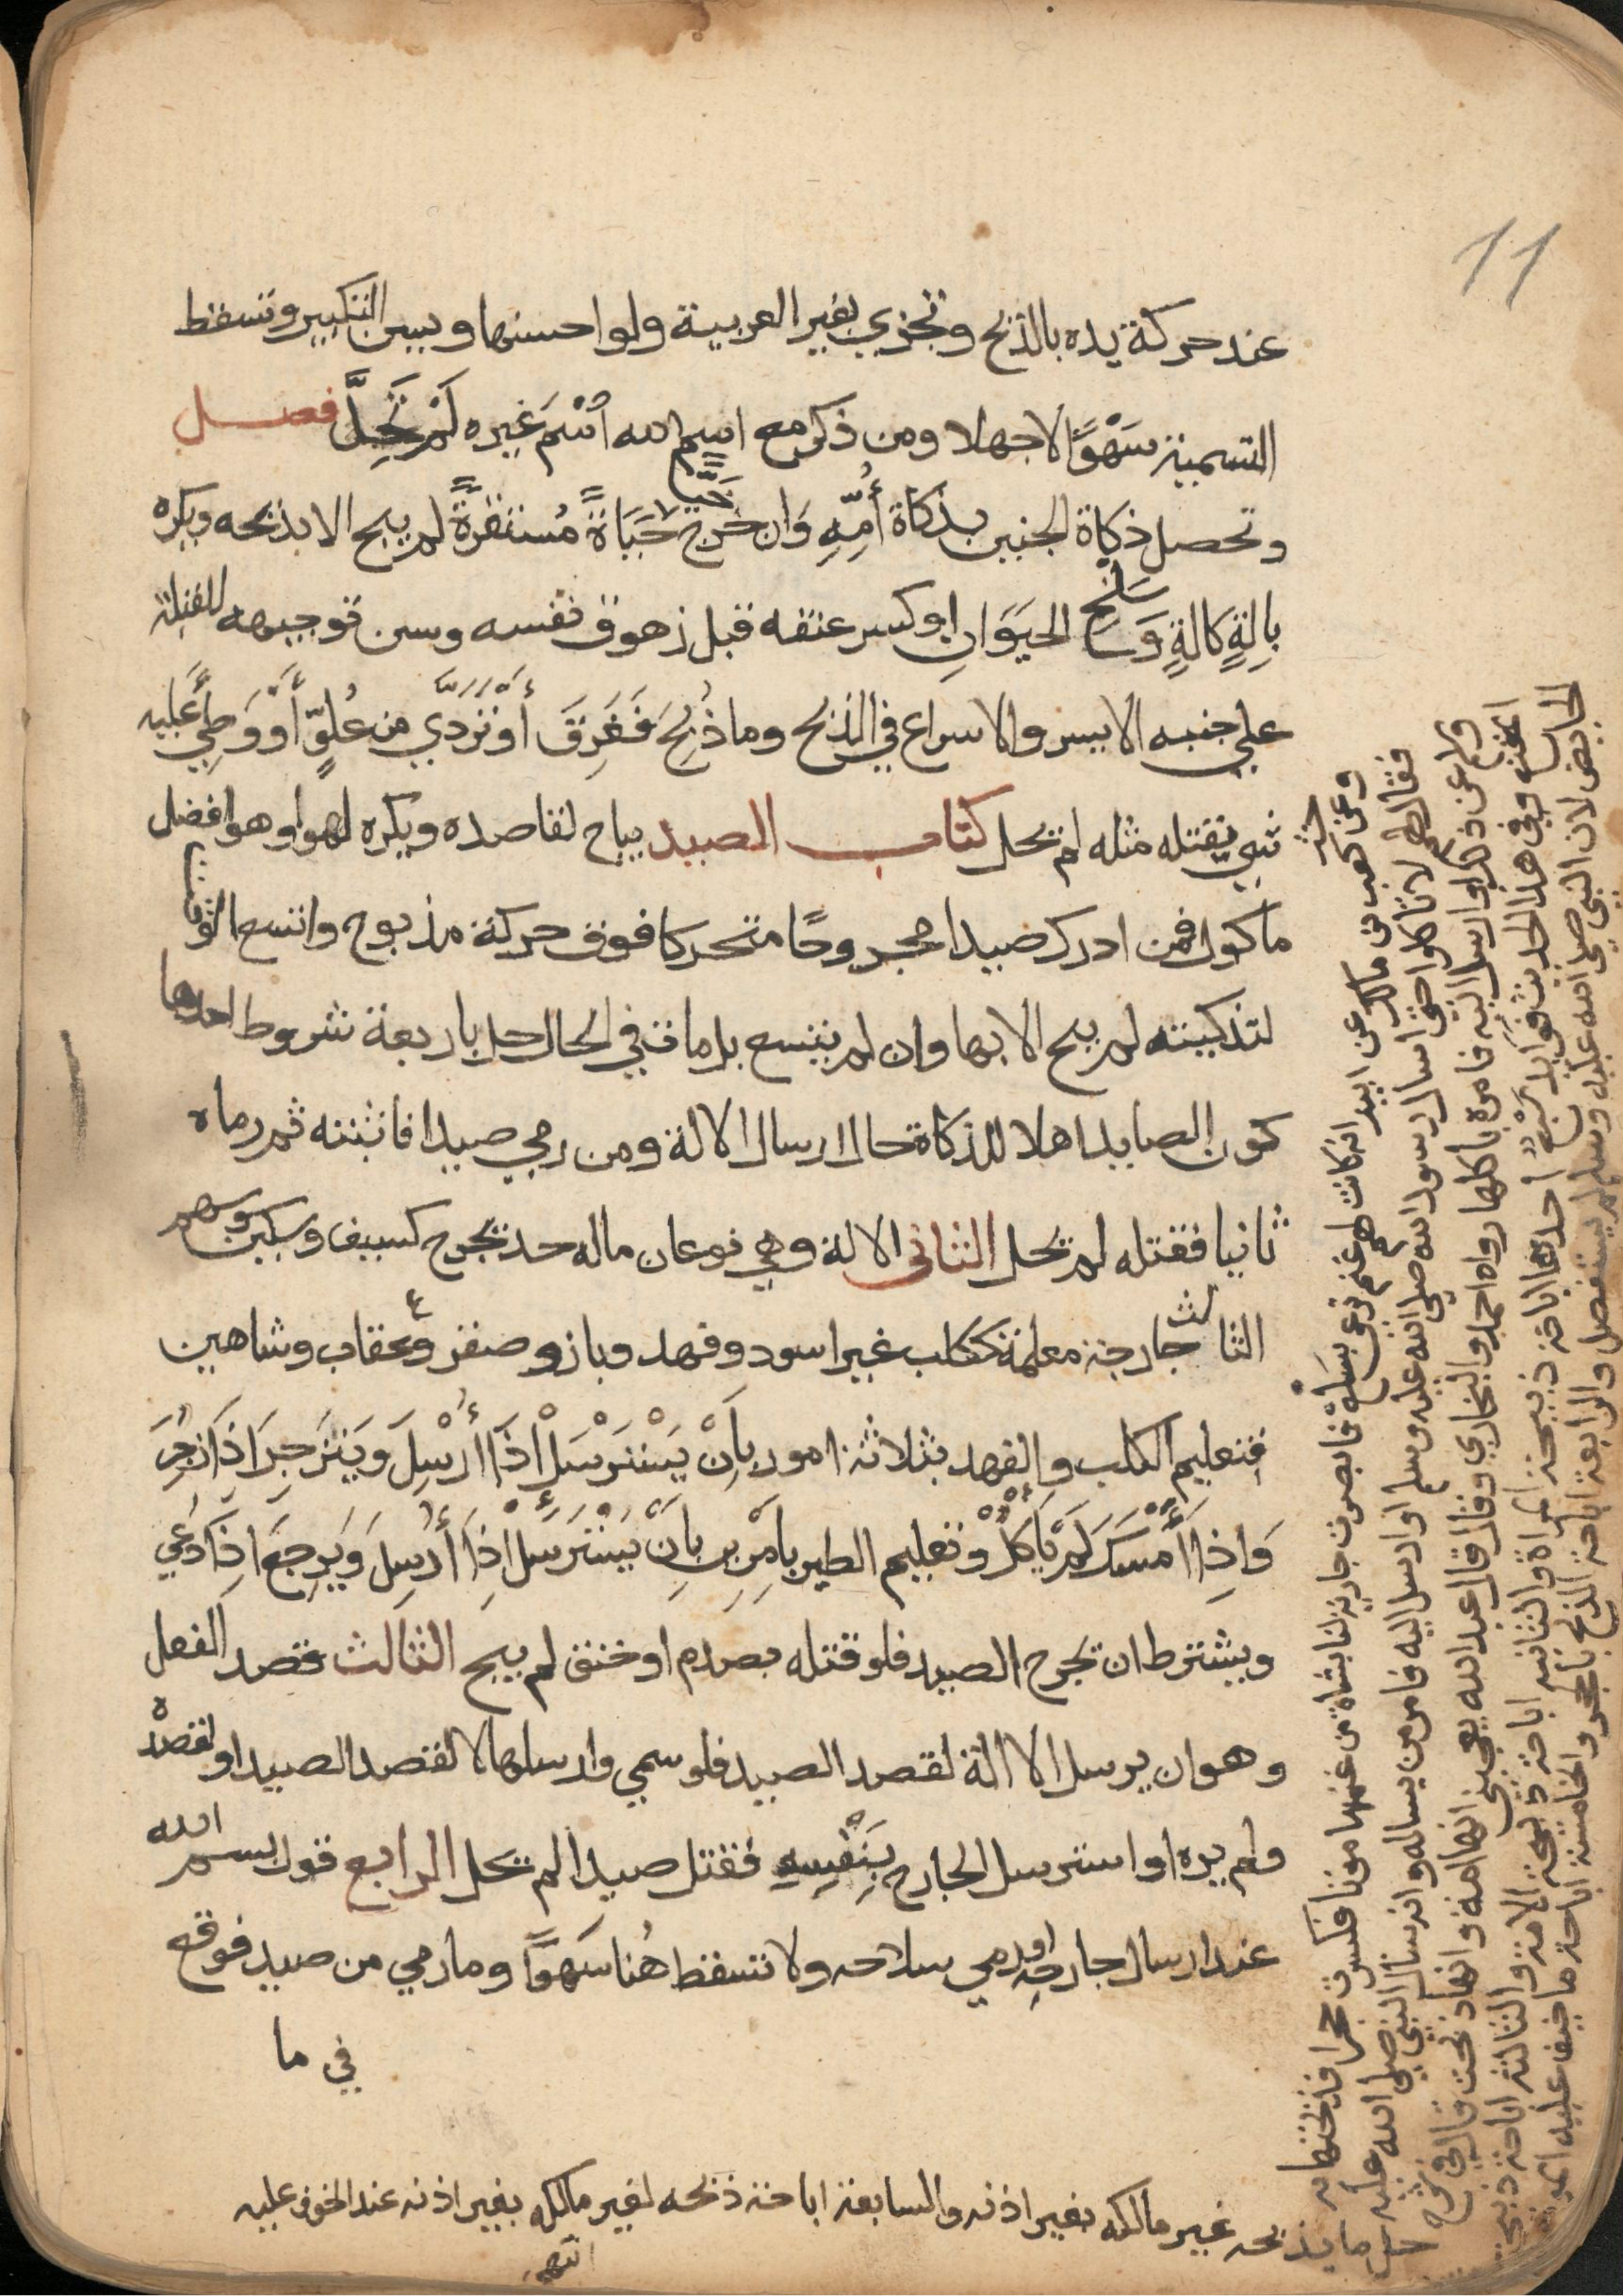 11
عند حركة يده بالذبح وتجزي بغير العربية ولو احسنها ويسن التكبير وتسقط
التسمية سَهْوًا لا جهلا ومن ذكر مع اسم الله اسْمَ غيره لَمْ تَحِلَّ فصل
وتحصل ذكاة الجنين بذكاة أُمِّهِ وَان خرج حَيًّا حَيَاةً مُستقرةً لم يبح الا بذبحه ويكره
بِالةٍ كالةٍ وَسَلْخ الحيَوَانِ او كسر عنقه قبل زهوق نفسه وسن توجيهه للقبلة
على جنبه الايسر والاسراع في الذبح وما ذُبِحَ فَغَرِقَ أوْ تَرَدَّي من عُلُوٍّ أوْ وَطِيَ عَلَيه
شي يقتله مثله لم تحل كتاب الصيد يباح لقاصده ويكره لهوا وهو افضل
ماكول فمن ادرك صيدا مجروحًا متحركا فوق حركة مذبوح واتسع الوقت
لتذكيته لم يبح الا بها وان لم يتسع بل مات في الحال حل باربعة شروط احدها
كون الصايد اهلا للذكاة حال ارسال الالة ومن رمي صيدا فاثبته ثم رماه
ثانيا فقتله لم تحل الثاني الالة وهي نوعان ماله حد يجرح كسيف وسكين وسهم
الثالث جارحة معلمة ككلب غير اسود وفهد وباز وصقر وعقاب وشاهين
فتعليم الكلب والفهد بثلاثة امور بِأَنْ يَسْتَرْسَلْ اذَا أُرْسِلَ ويَنْزَجِرَ اذَا زُجِرَ
وَاذَا أمْسَكَ لَمْ يَاكُلْ وتعليم الطير بِامْرَينِ بِانْ يَسْتَرْسَلَ اذَا أُرْسِلَ وَيَرجِعَ اذَا دُعي
ويشترط ان تجرح الصيد فلو قتله بصدم او خنق لم يبح الثالث قصد الفعل
وهو ان يرسل الا الة لقصد الصيد فلو سمي وارسلها لا لقصد الصيد او لقصدْه
ولم يره او استرسل الجارح بِنَفْسِهِ فقتل صيدا لم تحل الرابع قول بسم الله
عند ارسال جارحه او رمي سلاحه ولا تسقط هُنا سَهوًا وما رمي من صيد فوقع
في ما
وعن كعب بن مالك عن ابيه انه كانت لهم غنم ترعى بسَلْع فابصرت جارية لنا بشاة من غنمها موتا فكسرت حجرا فذبحتها به
فقال لهم لا تاكلوا حتى اسال رسول الله صلى الله عليه وسلم او ارسل اليه فامر من يساله وانه سال النبي صلى الله عليه
ولم عن ذلك او ارسل اليه فامره باكلها رواه احمد والبخاري وقال قال عبد الله يعجبني انها امة وانها ذبحت قال في شرح
المقنع وفي هذا الحديث فوايد سَبْعٌ احدها اباحة ذبيحة المراة والثانية اباحة ذبيحة الامة والثالثة اباحة ذبيحة
الحايض لان النبي صلى الله عليه وسلم لم يستفصل والرابعة اباحة الذبح بالحجر والخامسة اباحة ما خيف عليه الموت
ما يذبحه غير مالكه بغير اذنه والسابعة اباحة ذبحه لغير مالكه بغير اذنه عند الخوف عليه
انتهى